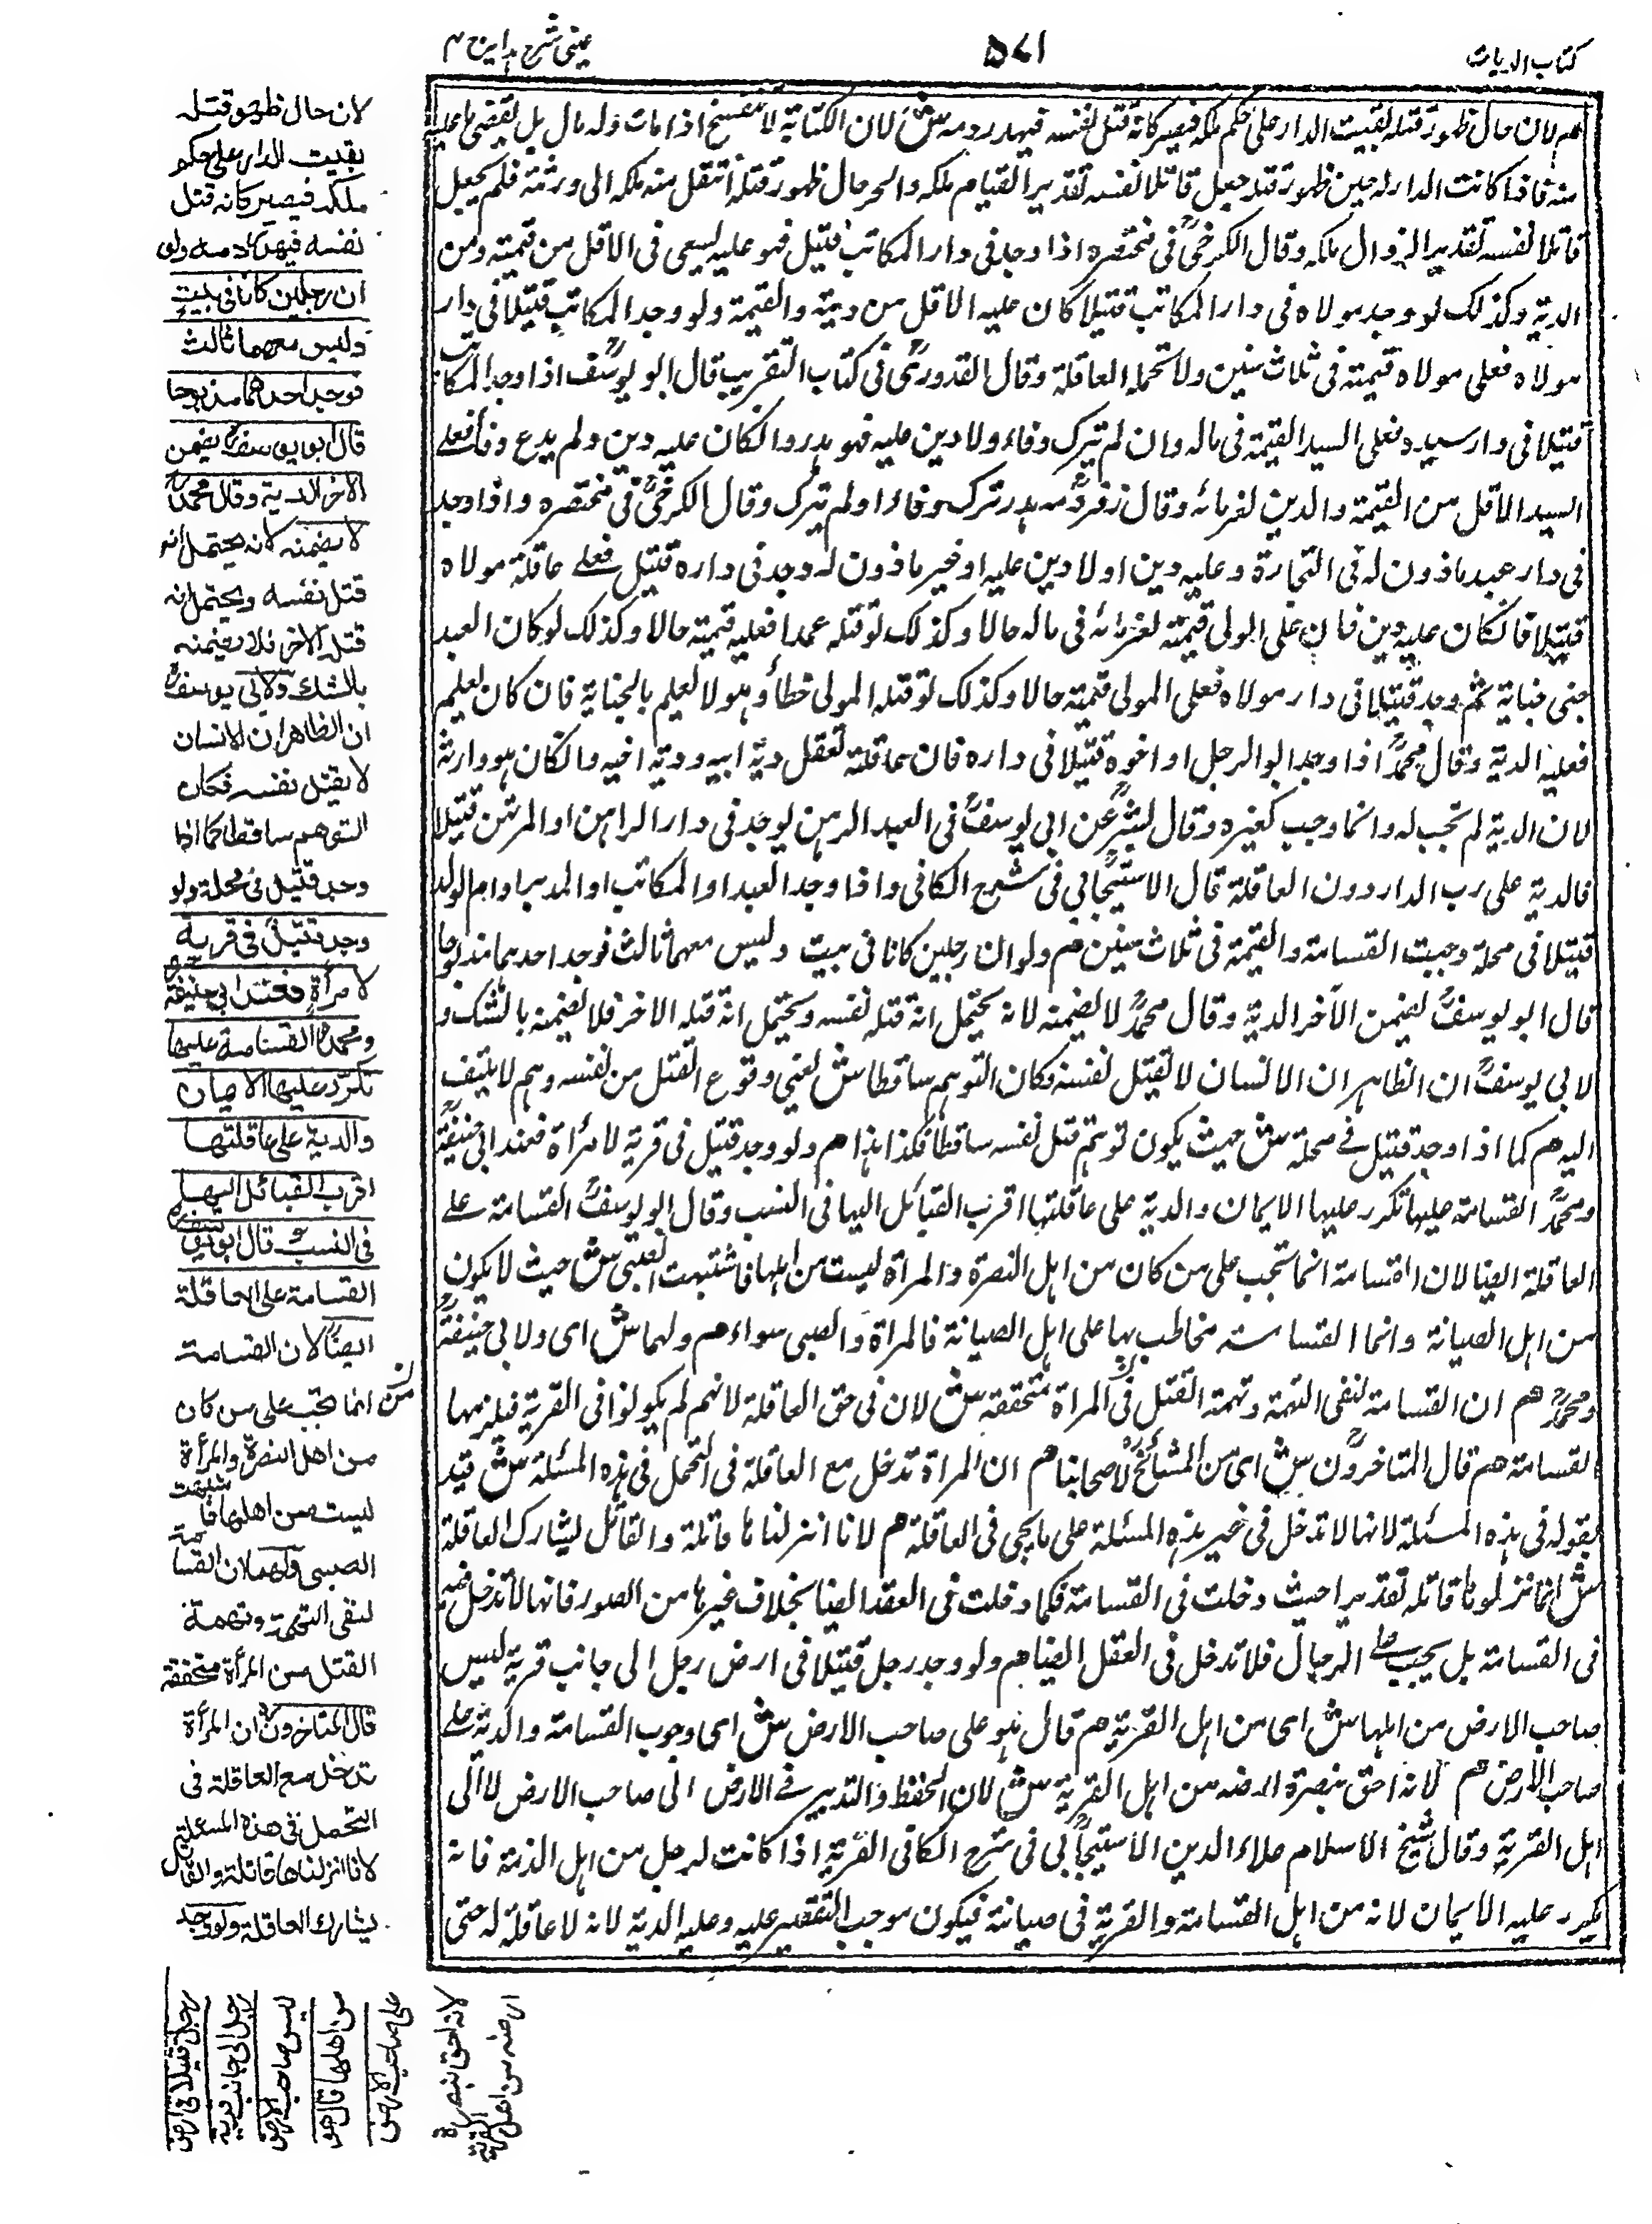 كتاب الديات
۵۷۱
عينى شرح هداية ج ۴
هم لان حال ظهور قتله بقيت الدار على حكم ملكه فيصير كانه قتل نفسه فيهدر دمه ش لان الكتابة لا تنفسخ اذا مات وله مال بل يقضى ما عليه
منه فاذا كانت الدار له حين ظهور قتله جعل قاتلا لنفسه تقديرا لقيام ملكه والحر حال ظهور قتله انتقل منه ملكه الى ورثته فلم يجعل
قاتلا لنفسه تقديرا لزوال ملكه وقال الكرخىؒ فى مختصره اذا وجد فى دار المكاتب قتيل فهو عليه يسعى فى الاقل من قيمته ومن
الدية وكذلك لو وجد مولاه فى دار المكاتب قتيلا كان عليه الاقل من دية والقيمة ولو وجد المكاتب قتيلا فى دار
مولاه فعلى مولاه قيمته فى ثلاث سنين ولا تحمله العاقلة وقال القدورىؒ فى كتاب التقريب قال ابو يوسفؒ اذا وجد المكاتب
قتيلا فى دار سيده فعلى السيد القيمة فى ماله وان لم يترك وفاء ولا دين عليه فهو هدر وان كان عليه دين ولم يدع وفاء فعلے
السيد الاقل من القيمة والدين لغرمائه وقال زفرؒ دمه هدر ترك وفاء او لم يترك وقال الكرخىؒ فى مختصره واذا وجد
فى دار عبد ماذون له فى التجارة وعليه دين او لا دين عليه او غير ماذون له وجد فى داره قتيل فعلے عاقلة مولاه
قتيلا فان كان عليه دين فان على المولى قيمته لغرمائه فى ماله حالا وكذلك لو قتله عمدا فعليه قيمته حالا وكذلك لو كان العبد
جنى جناية ثم وجد قتيلا فى دار مولاه فعلى المولى قيمته حالا وكذلك لو قتله المولى خطأ وهو لا يعلم بالجناية فان كان يعلم
فعليه الدية وقال محمدؒ اذا وجد ابو الرجل او اخوه قتيلا فى داره فان عاقلته تعقل دية ابيه ودية اخيه وان كان هو وارثه
لان الدية لم تجب له وانما وجب كغيره وقال بشر عن ابى يوسفؒ فى العبد الرهن يوجد فى دار الراهن او المرتهن قتيلا
فالدية على رب الدار دون العاقلة قال الاسبيجابىؒ فى شرح الكافى واذا وجد العبد او المكاتب او المدبر او ام الولد
قتيلا فى محلة وجبت القسامة والقيمة فى ثلاث سنين هم ولو ان رجلين كانا فى بيت وليس معهما ثالث فوجد احدهما مذبوحا
قال ابو يوسفؒ يضمن الآخر الدية وقال محمدؒ لا يضمنه لانه يحتمل انه قتله نفسه ويحتمل انه قتله الاخر فلا يضمنه بالشك و
لابى يوسفؒ ان الظاهر ان الانسان لا يقتل نفسه فكان التوهم ساقطا ش يعنى وقوع القتل من نفسه وهم لا يلتفت
اليه هم كما اذا وجد قتيل فے محلة ش حيث يكون توهم قتل نفسه ساقطا فكذا هذا هم ولو وجد قتيل فى قرية لامرأة فعند ابى حنيفةؒ
ومحمدؒ القسامة عليها تكرر عليها الايمان والدية على عاقلتها اقرب القبائل اليها فى النسب وقال ابو يوسفؒ القسامة علے
العاقلة ايضا لان القسامة انما تجب على من كان من اهل النصرة والمراة ليست من اهلها فاشبهت الصبى ش حيث لا يكون
من اهل الصيانة وانما القسامة مخاطب بها على اهل الصيانة فالمراة والصبى سواء هم ولهما ش اى ولابى حنيفةؒ
ومحمدؒ هم ان القسامة لنفى التهمة وتهمة القتل فى المراة متحققة ش لان فى حق العاقلة لانهم لم يكونوا فى القرية فيلزمها
القسامة هم قال المتاخرونؒ ش اى من المشائخ لاصحابنا هم ان المراة تدخل مع العاقلة فى التحمل فى هذه المسئلة ش قيد
بقوله فى هذه المسئلة لانها لا تدخل فى غير هذه المسئلة على ما يجى فى العاقلة هم لانا انزلناها قاتلة والقاتل يشارك العاقلة
ش انما نزلوها قاتله تقديرا حيث دخلت فى القسامة فكما دخلت فى العقد ايضا بخلاف غيرها من الصور فانها لا تدخل فيه
فى القسامة بل يجب علے الرجال فلا تدخل فى العقل ايضا هم ولو وجد رجل قتيلا فى ارض رجل الى جانب قرية ليس
صاحب الارض من اهلها ش اى من اهل القرية هم قال هو على صاحب الارض ش اى وجوب القسامة والدية علے
صاحب الارض هم لانه احق بنصرة ارضه من اهل القرية ش لان الحفظ والتدبير فے الارض الى صاحب الارض لا الى
اهل القرية وقال شيخ الاسلام علاء الدين الاسبيجابىؒ فى شرح الكافى القرية اذا كانت لرجل من اهل الذمة فانه
يكرر عليه الايمان لانه من اهل القسامة والقرية فى صيانته فيكون موجب التقصير عليه وعليه الدية لانه لا عاقلة له حتى
لان حال ظهور قتله
بقيت الدار على حكم
ملكه فيصير كانه قتل
نفسه فيهدر دمه ولو
ان رجلين كانا فى بيت
وليس معهما ثالث
فوجد احدهما مذبوحا
قال ابو يوسفؒ يضمن
الاخر الدية وقال محمدؒ
لا يضمنه لانه يحتمل انه
قتل نفسه ويحتمل انه
قتله الاخر فلا يضمنه
بالشك ولابى يوسفؒ
ان الظاهر ان الانسان
لا يقتل نفسه فكان
التوهم ساقطا كما اذا
وجد قتيل فى محلة ولو
وجد قتيل فى قرية
لامرأة فعند ابى حنيفةؒ
ومحمدؒ القسامة عليها
تكرر عليها الايمان
والدية على عاقلتها
اقرب القبائل اليها
فى النسب وقال ابو يوسفؒ
القسامة على العاقلة
ايضا لان القسامة
انما تجب على من كان
من اهل النصرة والمرأة
ليست من اهلها فاشبهت
الصبى ولهما ان القسامة
لنفى التهمة وتهمة
القتل من المرأة متحققة
قال المتاخرونؒ ان المرأة
تدخل مع العاقلة فى
التحمل فى هذه المسئلة
لانا انزلناها قاتلة والقاتل
يشارك العاقلة ولو وجد
رجل قتيلا فى ارض
رجل الى جانب قرية
ليس صاحب الارض
من اهلها قال هو
على صاحب الارض
لانه احق بنصرة
ارضه من اهل القرية